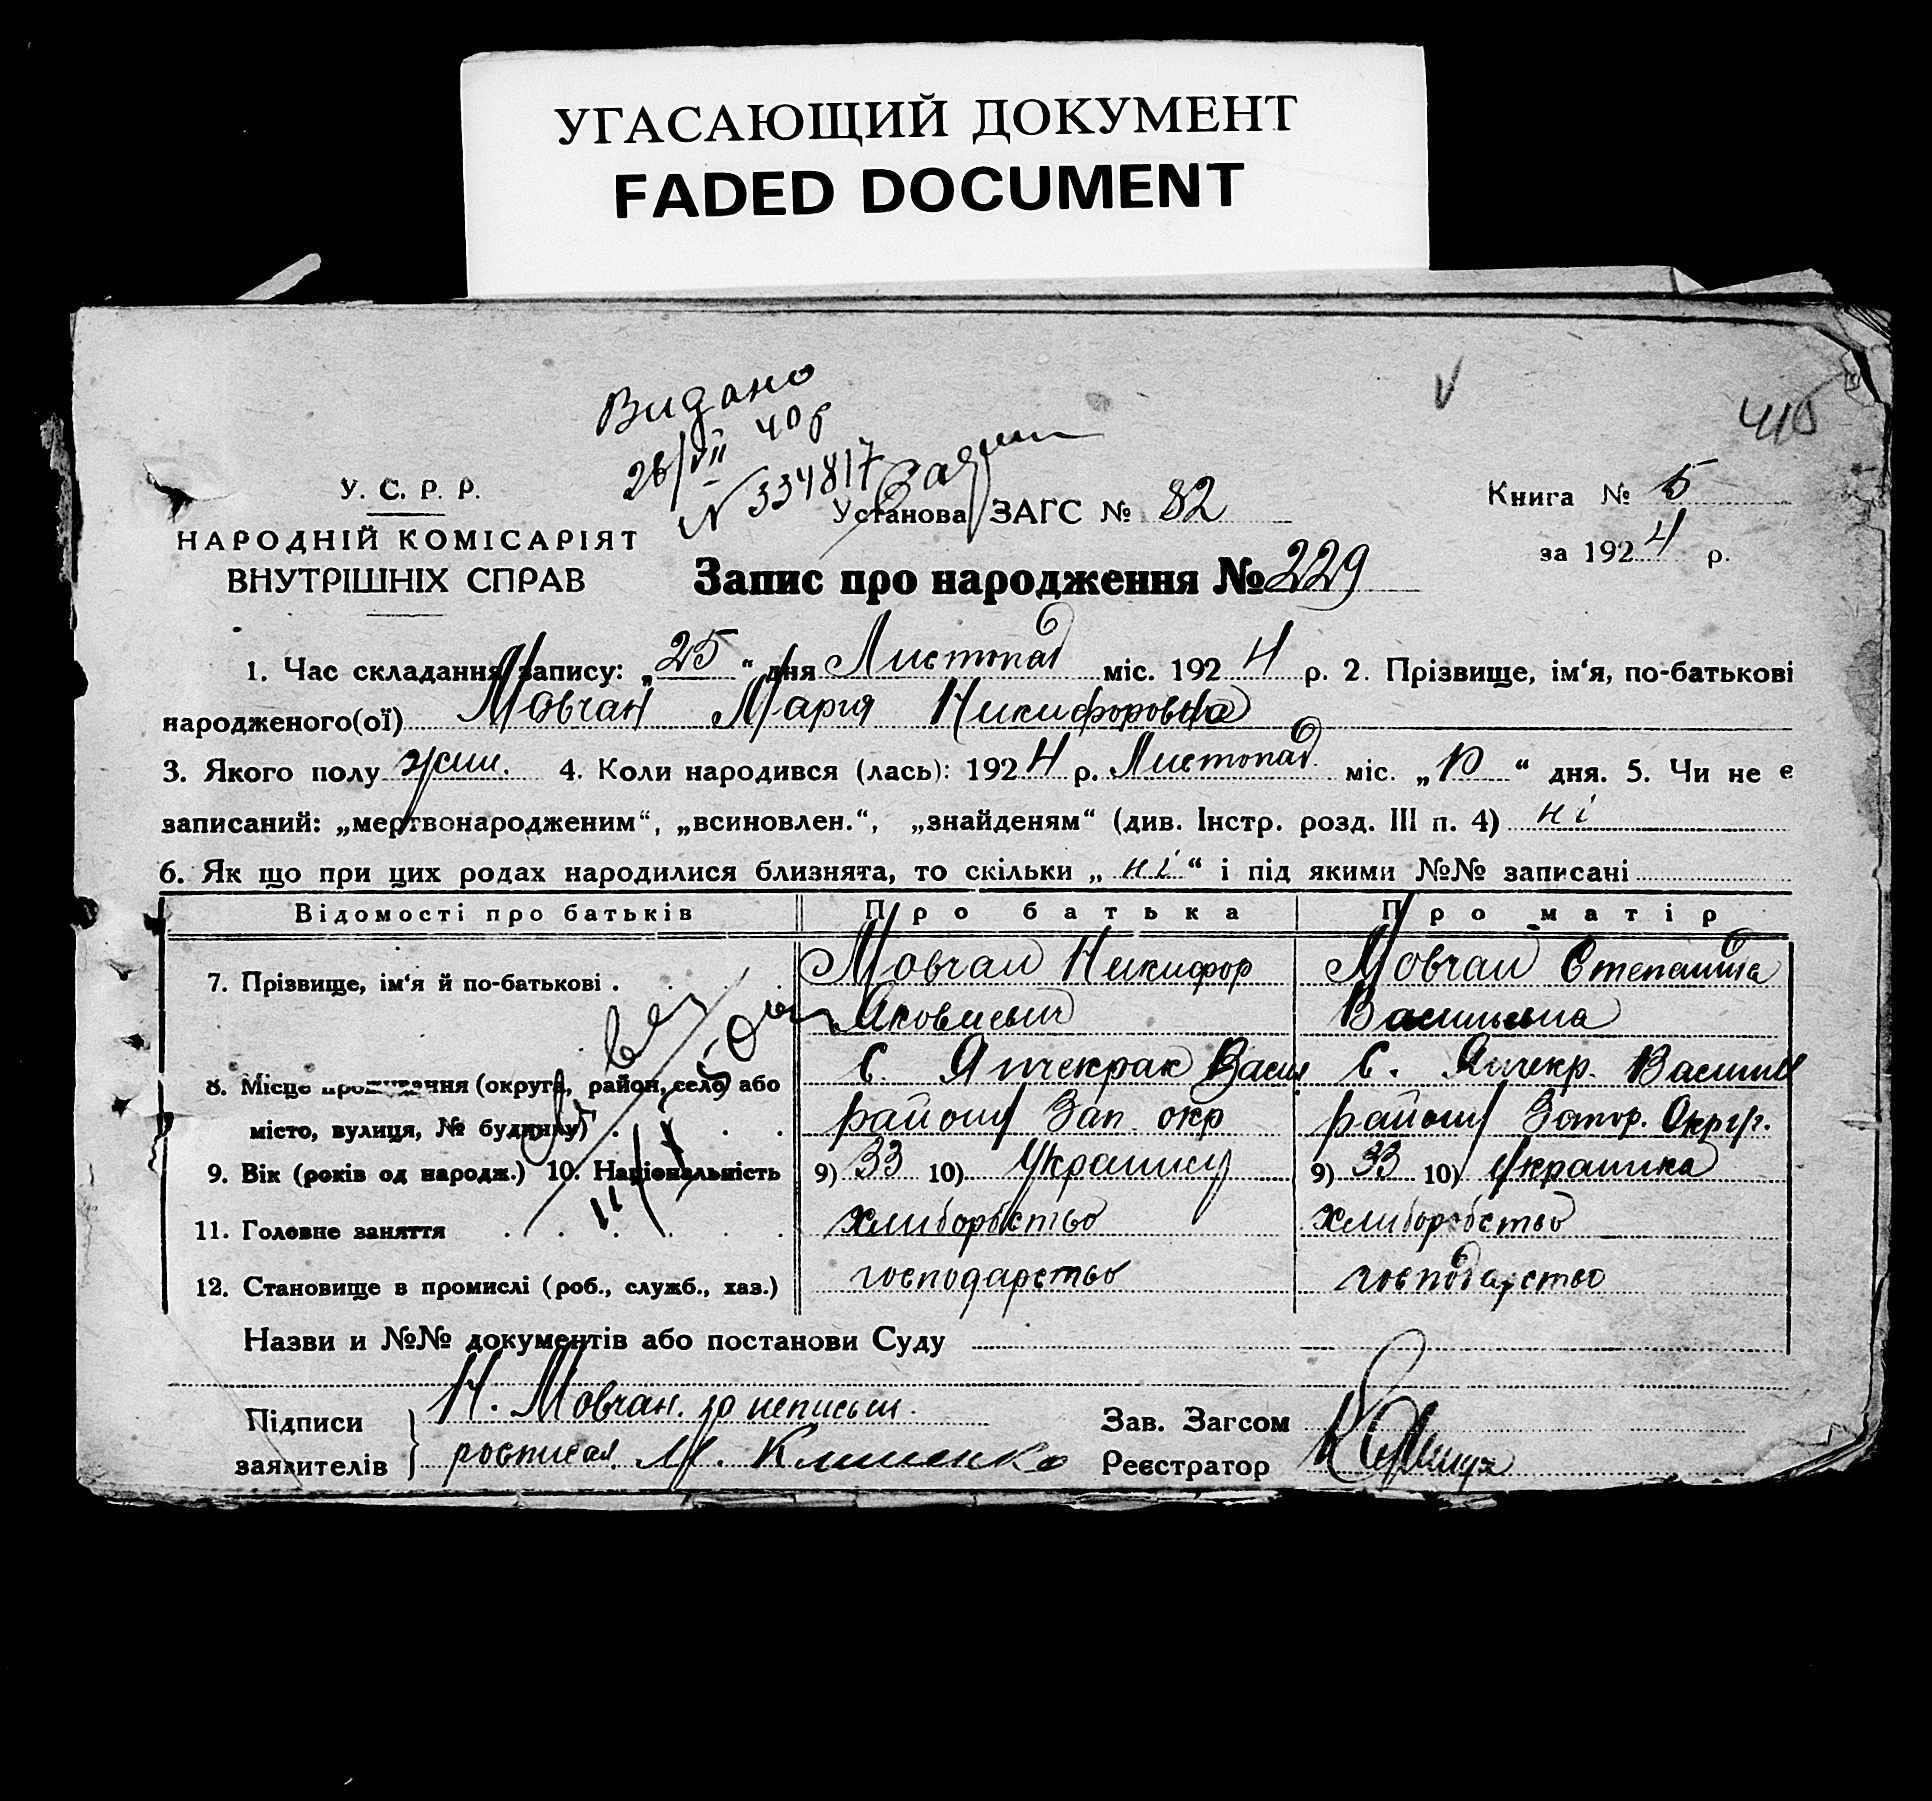 УГАСАЮЩИЙ ДОКУМЕНТ
FADED DOCUMENT
Видано
26/VII 40 р
N 334817
415
У. С. Р. Р.
НАРОДНІЙ КОМІСАРІЯТ
ВНУТРІШНІХ СПРАВ
Установа ЗАГС № 82
Книга № 5
за 1924 р.
Запис про народження № 229
1. Час складання запису: „25“ дня Листопад міс. 1924 р. 2. Прізвище, ім‘я, по-батькові
народженого(ої) Мовчан Мария Никифоровна
3. Якого полу жин. 4. Коли народився (лась): 1924 р. Листопад міс. „10“ дня. 5. Чи не є
записаний: „мертвонародженим“, „всиновлен.“, „знайденям“ (див. Інстр. розд. III п. 4) ні
6. Як що при цих родах народилися близнята, то скільки „ні“ і під якими №№ записані
Відомості про батьків Про батька Про матір
7. Прізвище, ім‘я й по-батькові . Мовчан Никифор Мовчан Степанида
Яковлевич Васильевна
С. Янчекрак Васил С. Янчекр. Васил
8. Місце проживання (округа, район, село) або
місто, вулиця, № будинку) району Зап окр району Запор. Округ.
9. Вік (років од народж.) 10. Національність 9) 33 10) Украинец 9) 33 10) Украинка
11. Головне заняття хлиборобство хлиборобство
12. Становище в промислі (роб., служб., хаз.) господарство господарство
Назви и №№ документів або постанови Суду
Підписи Н. Мовчан. за неписьм. Зав. Загсом
заявителів росписал М. Клименко Реєстратор